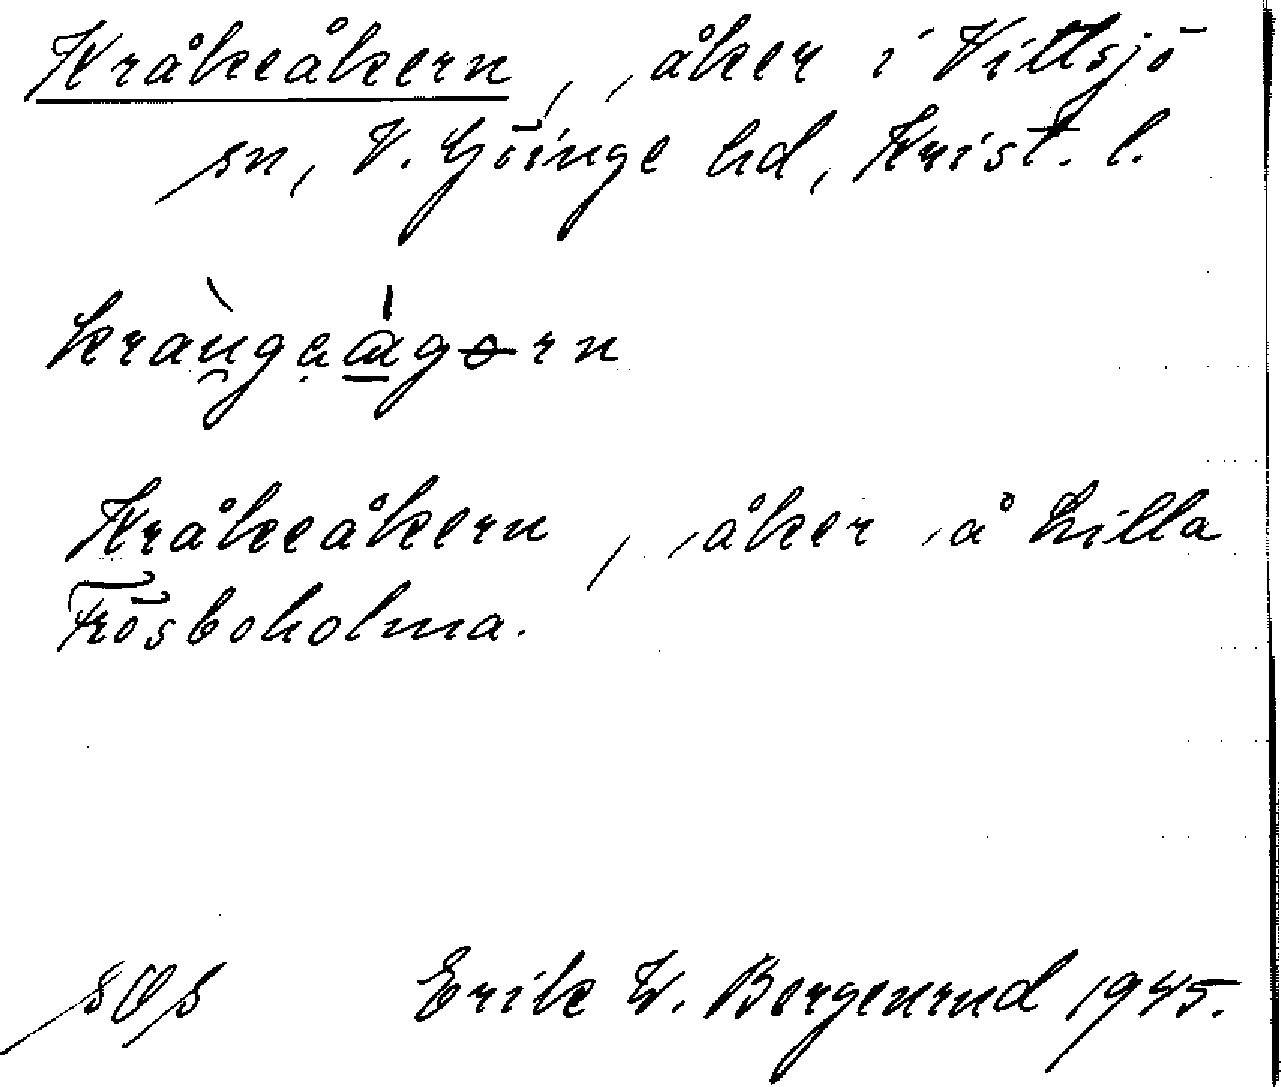 Kråkeåkern, åker i Vittsjö
sn, V. Göinge hd, Krist. l.
Kråkeåkern, åker å Lilla
Frösboholma.
Erik W. Bergenrud 1945.